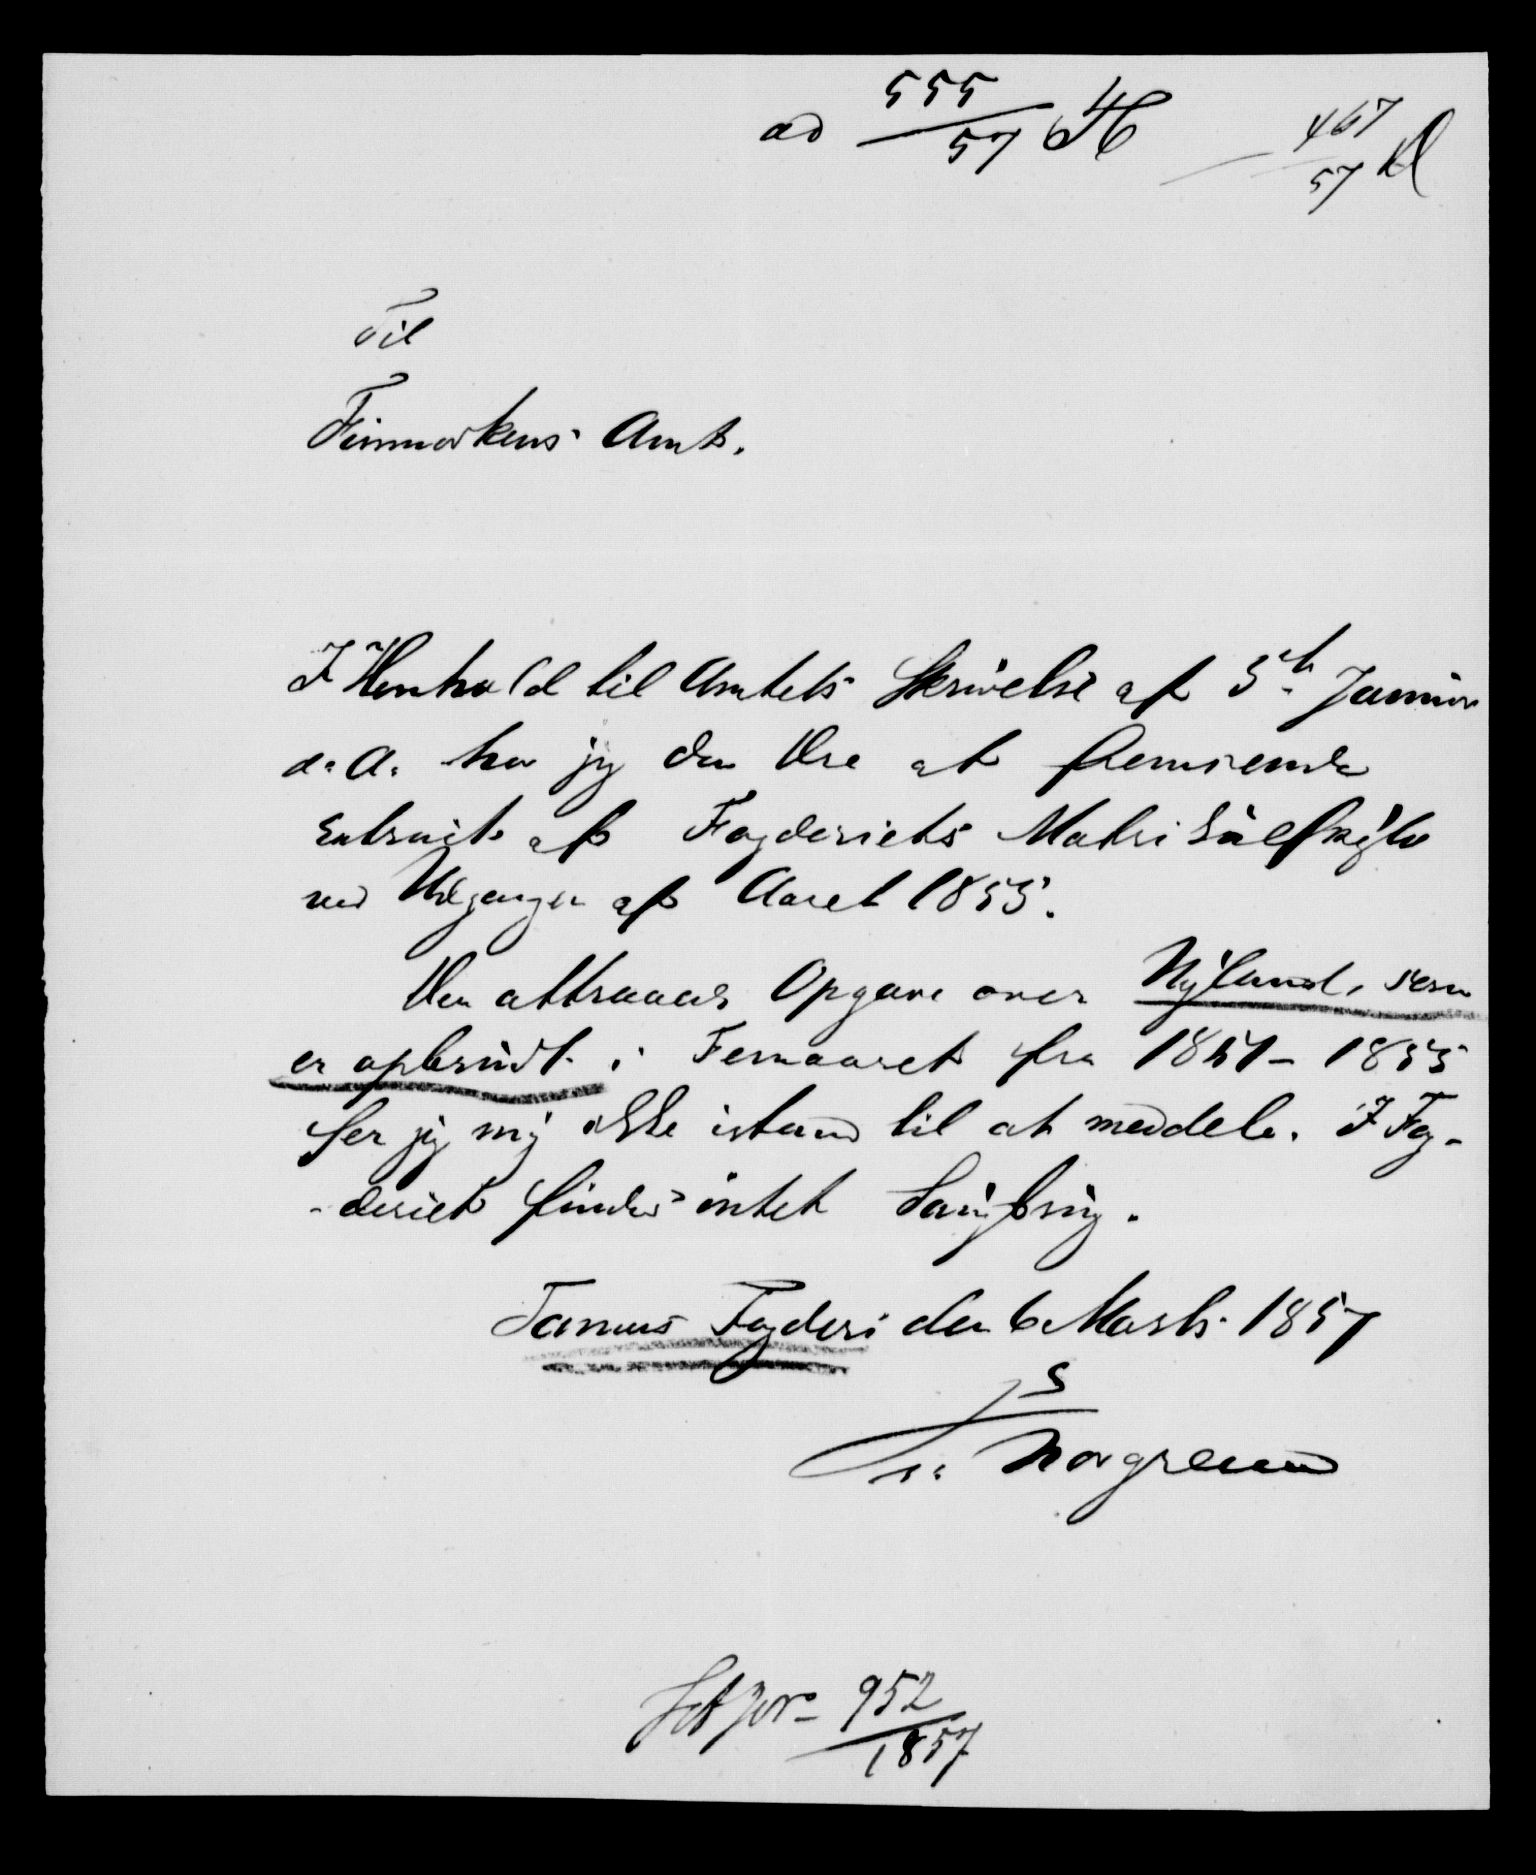 ad 555/57 H
467/57 D
Til
Finmarkens Amt.
I Henhold til Amtets Skrivelse af 5te Januar
d. A. har jeg den Ære at fremsende
Extract af Fogderiets Matrikulskyld
ved Udgangen af Aaret 1855.
Den attraaede Opgave over Nyland, som
er opbrudt i Femaaret fra 1851 - 1855
ser jeg mig ikke istand til at meddele. I Fog-
-deriet findes intet
Tanens Fogderi den 6 Marts 1857
Norgreen
952/1857